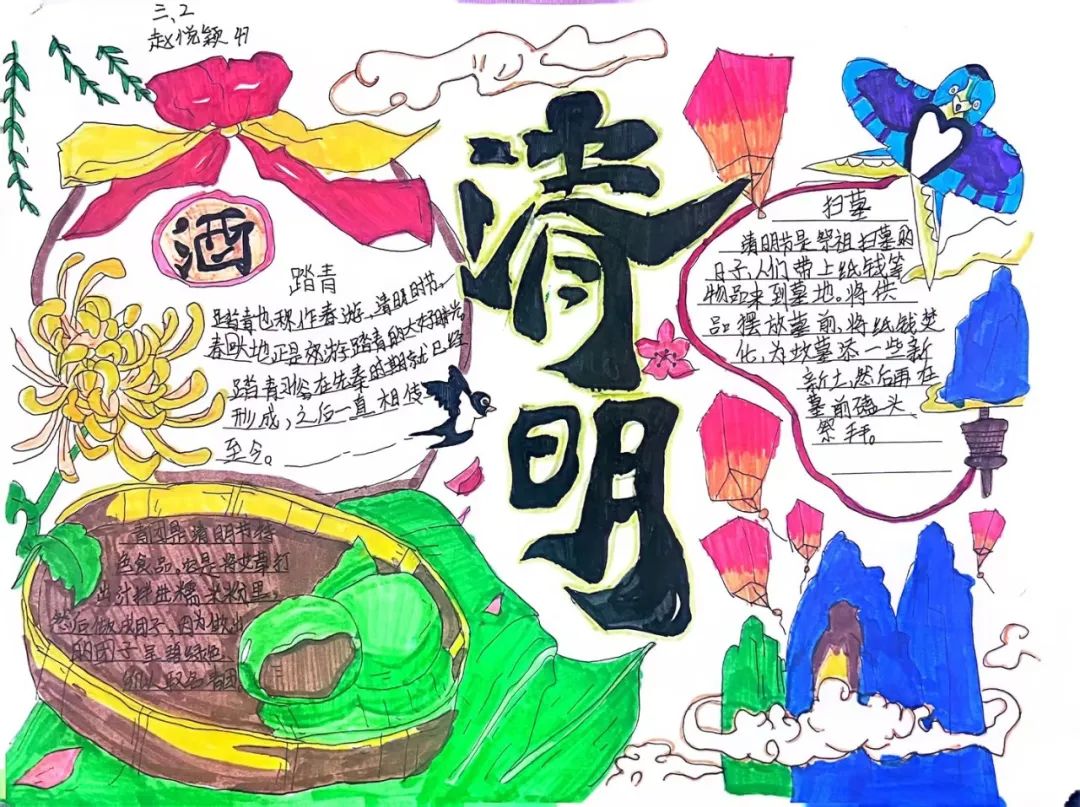 三、2
赵悦颖 49
清明
酒
踏青
踏青也称作春游，清明时节，
春回大地正是郊游踏青的大好时光。
踏青习俗在先秦的时期就已经
形成，之后一直相传
至今。
扫墓
清明节是祭祖扫墓的
日子，人们带上纸钱等
物品来到墓地。将供
品摆放墓前，将纸钱焚
化，为坟墓添一些新
新土，然后再在
墓前磕头
祭拜。
青团是清明节特
色食品。它是将艾草打
出汁拌进糯米粉里，
然后做成团子，因为做出
的团子呈碧绿色、
所以取名青团